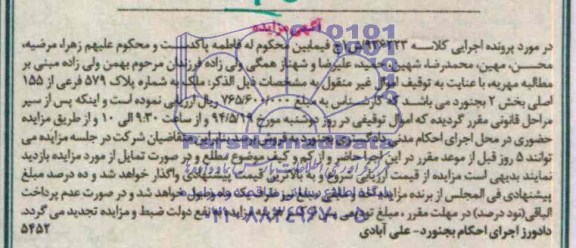 آگهی مزایده
در مورد پرونده اجرایی کلاسه ۹۳۶۲۳۳ ش ا ج فیمابین محکوم له فاطمه پاکدست و محکوم علیهم زهرا، مرضیه،
محسن، مهین، محمدرضا، شهین، علیرضا و شهناز همگی ولی زاده فرزندان مرحوم بهمن ولی زاده مبنی بر
مطالبه مهریه، با عنایت به توقیف اموال غیر منقول به مشخصات فیل الذکر: ملک به شماره پلاک ۵۷۹ فرعی از ۱۵۵
اصلی بخش ۲ بجنورد می باشد که کارشناس به مبلغ ۷۶۵/۶۰۰/۰۰۰ ریال ارزیابی نموده است و اینکه پس از سیر
مراحل قانونی مقرر گردیده که اموال توقیفی در روز دوشنبه مورخ ۹۴/۵/۱۹ از ساعت ۹:۳۰ الی ۱۰ و از طریق مزایده
حضوری در محل اجرای احکام مدنی دادگستری بجنورد به فروش برسد، بنابراین متقاضیان شرکت در جلسه مزایده می
توانند ۵ روز قبل از موعد مقرر در این اجرا حاضر و از کم و کیف موضوع مطلع و در صورت تمایل از مورد مزایده بازدید
نمایند بدیهی است مزایده از قیمت ارزیابی شروع و به بالاترین قیمت واگذار خواهد شد و ده درصد مبلغ
پیشنهادی فی المجلس از برنده مزایده اخذ و مابقی مبلغ نیز ظرف یک ماه وصول خواهد شد و در صورت عدم پرداخت
الباقی (نود درصد) در مهلت مقرر، مبلغ تودیعی به نفع دولت ضبط و مزایده تجدید می گردد.
دادورز اجرای احکام بجنورد- علی آبادی ۵۴۵۲
ParsNamadData
۰۲۱-۸۸۳۴۹۶۷۰-۵